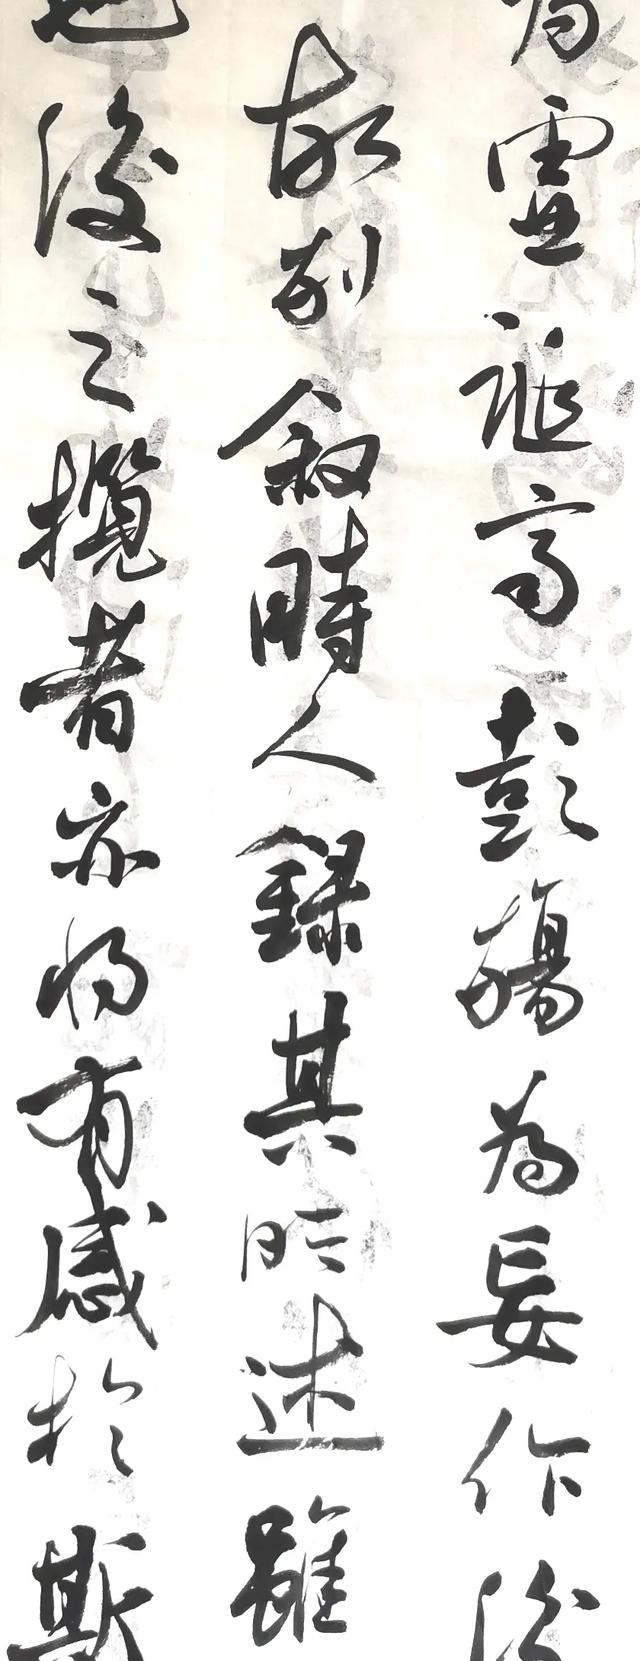 為虛誕齊彭殤為妄作後
故列敘時人錄其所述雖
也後之攬者亦將有感於斯